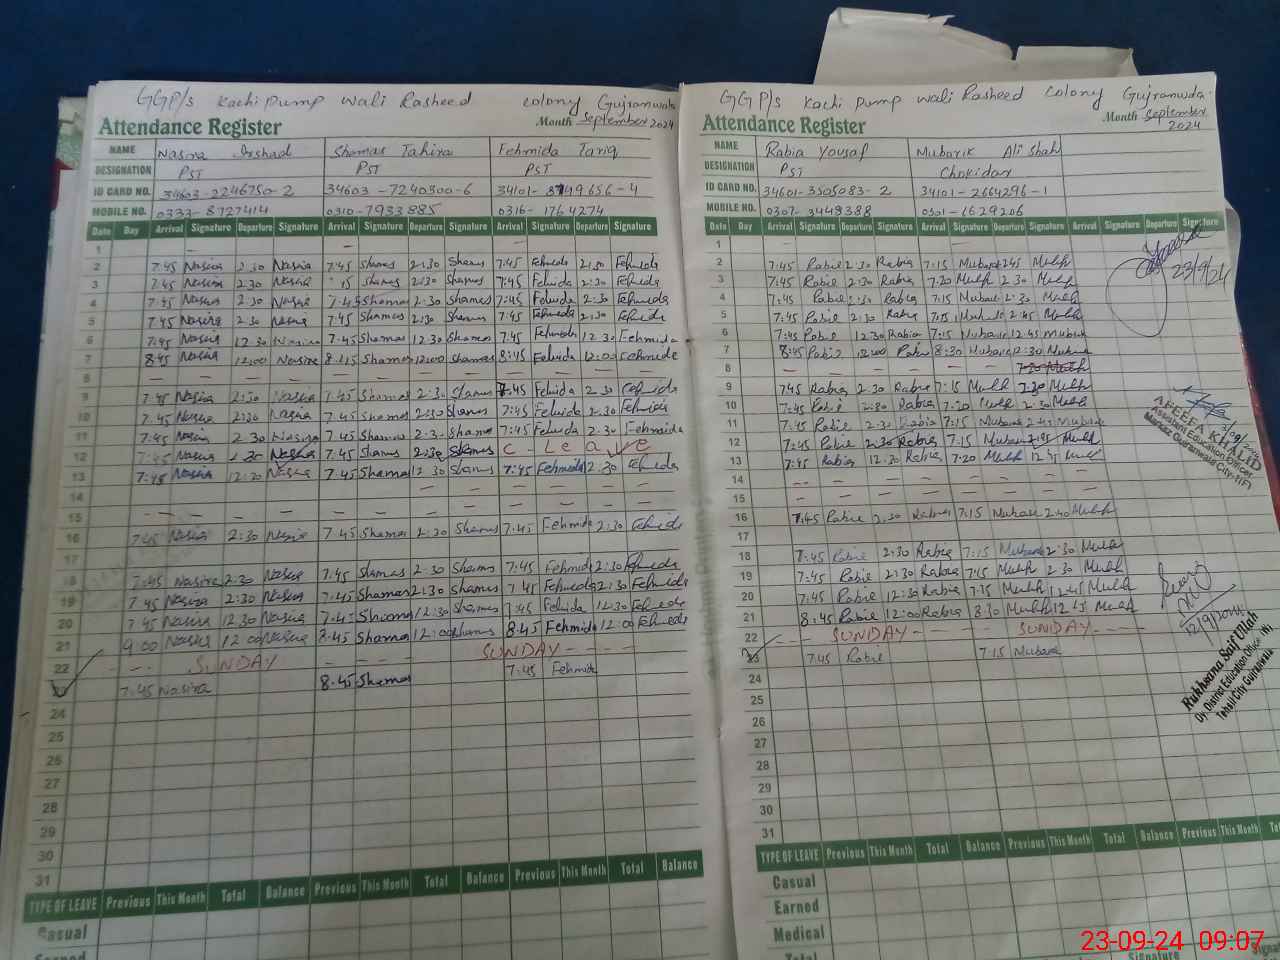 GGP/s Kachi Pump Wali Rasheed Colony Gujranwala
Attendance Register Month September 2024
NAME Nasira Irshad Shamas Tahira Fehmida Tariq
DESIGNATION PST PST PST
ID CARD NO. 34603-2246750-2 34603-7240300-6 34101-8749656-4
MOBILE NO. 0333-8727414 0310-7933885 0316-1764274
Date Day Arrival Signature Departure Signature Arrival Signature Departure Signature Arrival Signature Departure Signature
1 — — —
2 7:45 Nasira 2:30 Nasira 7:45 Shamas 2:30 Shamas 7:45 Fehmida 2:30 Fehmida
3 7:45 Nasira 2:30 Nasira Shamas 2:30 Shamas 7:45 Fehmida 2:30 Fehmida
4 7:45 Nasira 2:30 Nasira 7:45 Shamas 2:30 Shamas 7:45 Fehmida 2:30 Fehmida
5 7:45 Nasira 2:30 Nasira 7:45 Shamas 2:30 Shamas 7:45 Fehmida 2:30 Fehmida
6 7:45 Nasira 12:30 Nasira 7:45 Shamas 12:30 Shamas 7:45 Fehmida 12:30 Fehmida
7 8:45 Nasira 12:00 Nasira 8:45 Shamas 12:00 Shamas 8:45 Fehmida 12:00 Fehmida
8 — — — — — — — — — — — —
9 7:45 Nasira 2:30 Nasira 7:45 Shamas 2:30 Shamas 7:45 Fehmida 2:30 Fehmida
10 7:45 Nasira 2:30 Nasira 7:45 Shamas 2:30 Shamas 7:45 Fehmida 2:30 Fehmida
11 7:45 Nasira 2:30 Nasira 7:45 Shamas 2:30 Shamas 7:45 Fehmida 2:30 Fehmida
12 7:45 Nasira 2:30 Nasira 7:45 Shamas 2:30 Shamas C-Leave
13 7:45 Nasira 12:30 Nasira 7:45 Shamas 12:30 Shamas 7:45 Fehmida 12:30 Fehmida
14 — — — — — — — — — — — —
15 — — — — — — — — — — — —
16 7:45 Nasira 2:30 Nasira 7:45 Shamas 2:30 Shamas 7:45 Fehmida 2:30 Fehmida
17
18 7:45 Nasira 2:30 Nasira 7:45 Shamas 2:30 Shamas 7:45 Fehmida 2:30 Fehmida
19 7:45 Nasira 2:30 Nasira 7:45 Shamas 2:30 Shamas 7:45 Fehmida 2:30 Fehmida
20 7:45 Nasira 12:30 Nasira 7:45 Shamas 12:30 Shamas 7:45 Fehmida 12:30 Fehmida
21 9:00 Nasira 12:00 Nasira 8:45 Shamas 12:00 Shamas 8:45 Fehmida 12:00 Fehmida
22 - - - SUNDAY - - - - SUNDAY - - - -
23 7:45 Nasira 8:45 Shamas 7:45 Fehmida
24
25
26
27
28
29
30
31
TYPE OF LEAVE Previous This Month Total Balance Previous This Month Total Balance Previous This Month Total Balance
Casual
Earned
GGP/s Kachi Pump Wali Rasheed Colony Gujranwala.
Attendance Register Month September 2024
NAME Rabia Yousaf Mubarik Ali Shah
DESIGNATION PST Chokidar
ID CARD NO. 34601-3505083-2 34101-2664296-1
MOBILE NO. 0307-3448388 0301-1629206
Date Day Arrival Signature Departure Signature Arrival Signature Departure Signature Arrival Signature Departure Signature
1 — —
2 7:45 Rabia 2:30 Rabia 7:15 Mubarak 2:45
3 7:45 Rabia 2:30 Rabia 7:20 2:30
4 7:45 Rabia 2:30 Rabia 7:15 Mubarak 2:30
5 7:45 Rabia 2:30 Rabia 7:15 2:45
6 7:45 Rabia 12:30 Rabia 7:15 Mubarak 12:45 Mubarak
7 8:45 Rabia 12:00 Rabia 8:30 Mubarak 12:30 Mubarak
8 — — — — — —
9 7:45 Rabia 2:30 Rabia 7:15
10 7:45 Rabia 2:30 Rabia 7:20 2:30
11 7:45 Rabia 2:30 Rabia 7:15 Mubarak 2:45 Mubarak
12 7:45 Rabia 2:30 Rabia 7:15 Mubarak 2:45
13 7:45 Rabia 12:30 Rabia 7:20 12:45
14 — — — — — — — —
15 — — — — — — — —
16 7:45 Rabia 2:30 Rabia 7:15 Mubarak 2:40
18 7:45 Rabia 2:30 Rabia 7:15 Mubarak 2:30
19 7:45 Rabia 2:30 Rabia 7:15 2:30
20 7:45 Rabia 12:30 Rabia 7:15 12:45
21 8:45 Rabia 12:00 Rabia 8:30 12:45
22 - - - SUNDAY - - - - SUNDAY - - - -
23 7:45 Rabia 7:15 Mubarak
24
25
26
27
28
29
30
31
TYPE OF LEAVE Previous This Month Total Balance Previous This Month Total Balance Previous This Month Total
Casual
Earned
Medical
Total
Signature
23/9/24
AHEEFA KHALID
Assistant Education Officer
Markaz Gujranwala City-1(F)
12/9/2024
Rukhsana Saif Ullah
Dy. District Education Officer (W)
Tehsil City Gujranwala
23-09-24 09:07